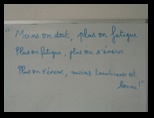 " Moins on dort, plus on fatigue.
Plus on fatigue, plus on s'énerve
Plus on s'énerve, moins l'ambiance est
bonne ! "